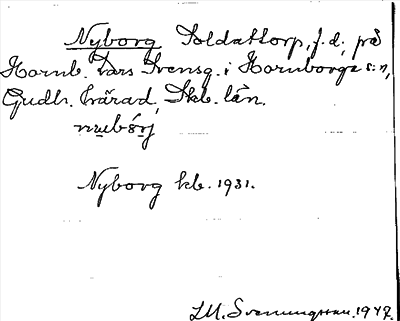 Nyborg Soldattorp, f.d., på
Hornb. Lars Svensg. i Hornborga s:n,
Gudh. härad, Skb. län.
Nyborg kb. 1931.
Svenungsson. 1947.